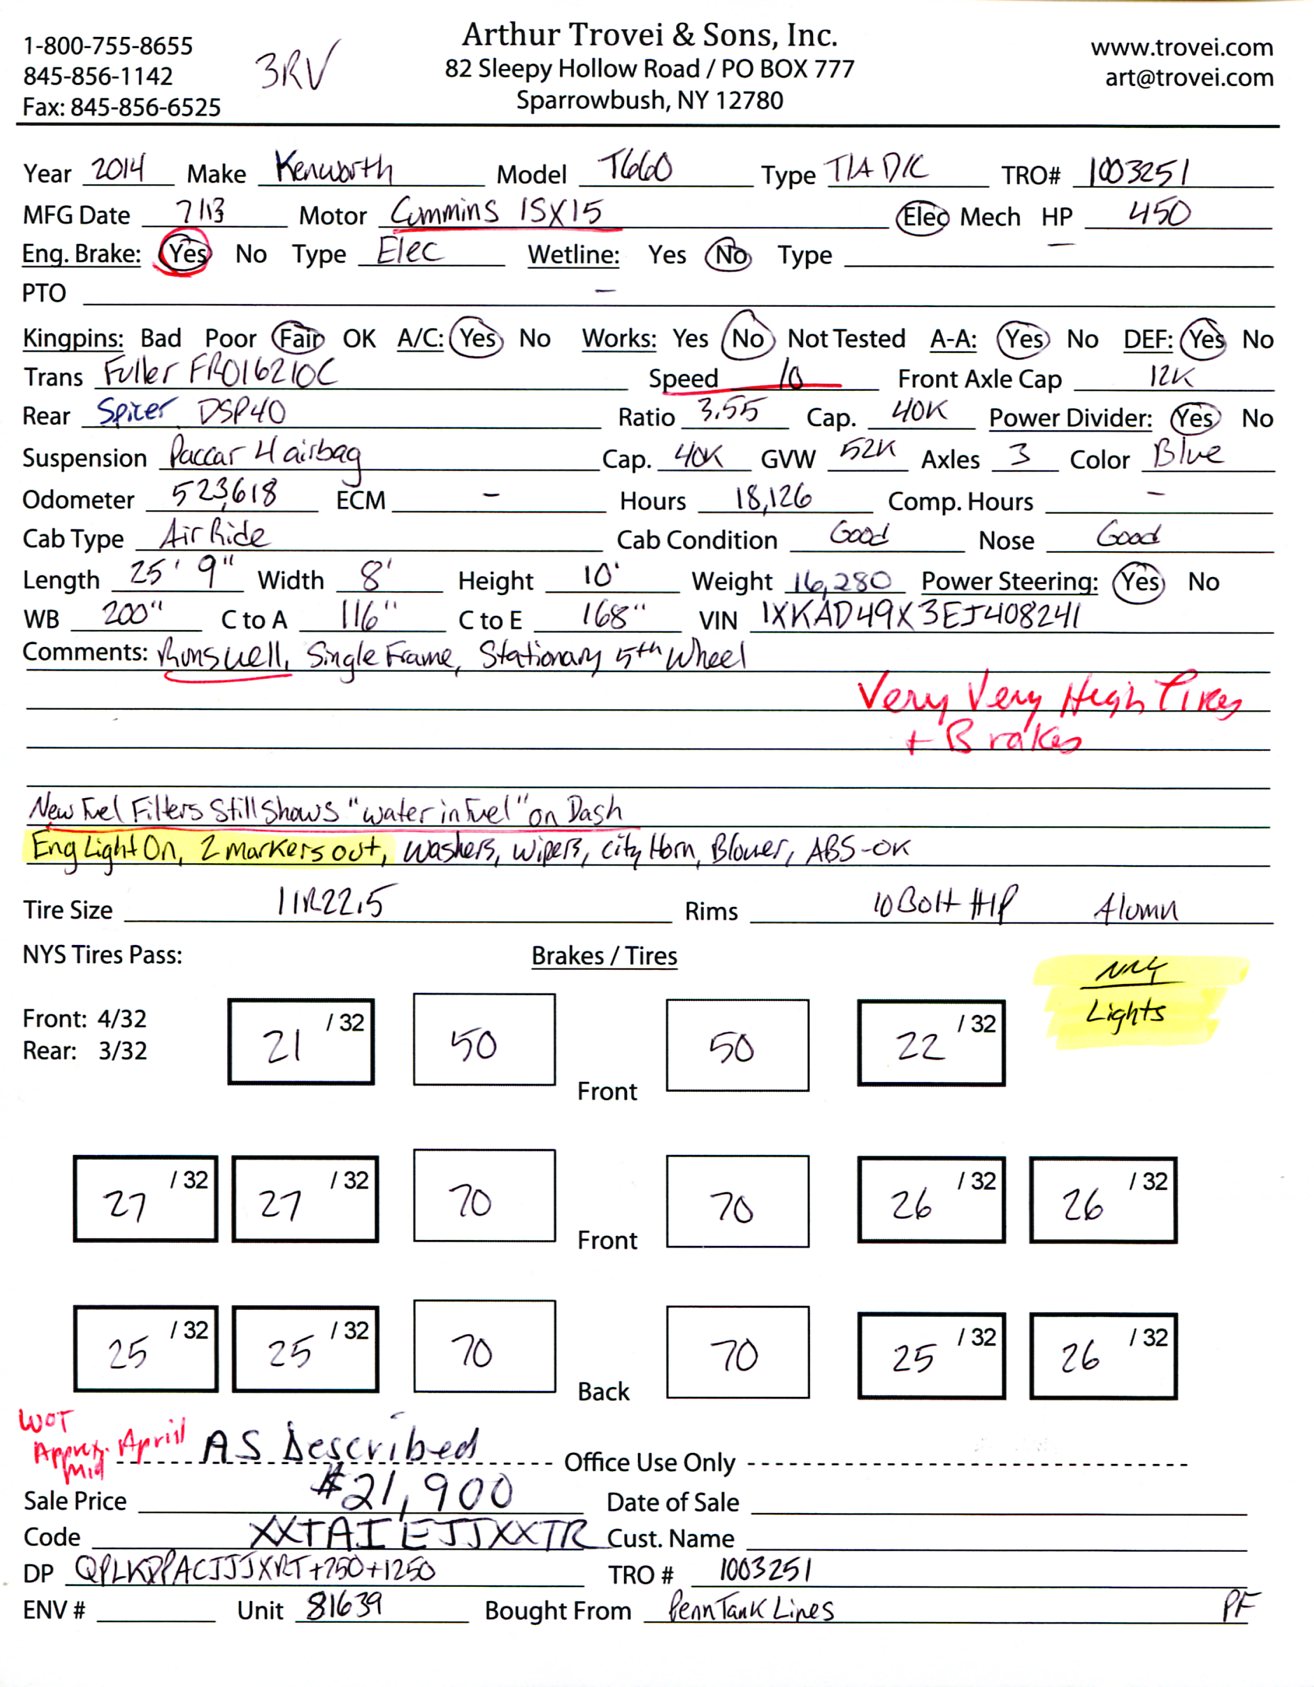 1-800-755-8655
845-856-1142
Fax: 845-856-6525
3RV
Arthur Trovei & Sons, Inc.
82 Sleepy Hollow Road / PO BOX 777
Sparrowbush, NY 12780
www.trovei.com
art@trovei.com
Year 2014 Make Kenworth Model T660 Type T/A D/C TRO# 1003251
MFG Date 7/13 Motor Cummins ISX15 Elec Mech HP 450
Eng. Brake: Yes No Type Elec Wetline: Yes No Type —
PTO —
Kingpins: Bad Poor Fair OK A/C: Yes No Works: Yes No Not Tested A-A: Yes No DEF: Yes No
Trans Fuller FRO16210C Speed 10 Front Axle Cap 12K
Rear Spicer DSP40 Ratio 3.55 Cap. 40K Power Divider: Yes No
Suspension Paccar 4 airbag Cap. 40K GVW 52K Axles 3 Color Blue
Odometer 523,618 ECM – Hours 18,126 Comp. Hours –
Cab Type Air Ride Cab Condition Good Nose Good
Length 25' 9" Width 8' Height 10' Weight 16,280 Power Steering: Yes No
WB 200" C to A 116" C to E 168" VIN 1XKAD49X3EJ408241
Comments: Runs well, Single Frame, Stationary 5th Wheel
Very Very High Tires
+ Brakes
New Fuel Filters Still Shows "water in Fuel" on Dash
Eng Light On, 2 markers out, washers, wipers, city Horn, Blower, ABS-OK
Tire Size 11R22.5 Rims 10 Bolt H/P Alumn
NYS Tires Pass: Brakes / Tires
Lights
Front: 4/32
Rear: 3/32
21 /32 50 50 22 /32
Front
27 /32 27 /32 70 70 26 /32 26 /32
Front
25 /32 25 /32 70 70 25 /32 26 /32
Back
WOT
Approx. April
Mid
AS Described Office Use Only
Sale Price $21,900 Date of Sale
Code XXTAIEJJXXTR Cust. Name
DP +750+1250 TRO # 1003251
ENV # Unit 81639 Bought From Penn Tank Lines PF